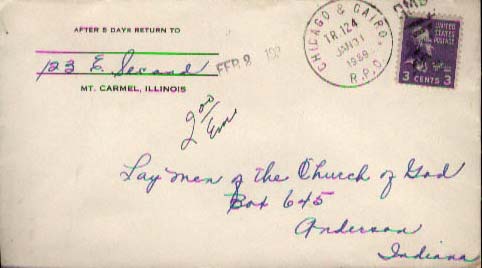 AFTER 5 DAYS RETURN TO
123 E. Second
MT. CARMEL, ILLINOIS
FEB 2
CHICAGO & CAIRO
TR. 124
JAN 31
1939
R.P.O.
UNITED
STATES
POSTAGE
3 CENTS 3
2 00
Lay men of the Church of God
Box 645
Anderson
Indiana